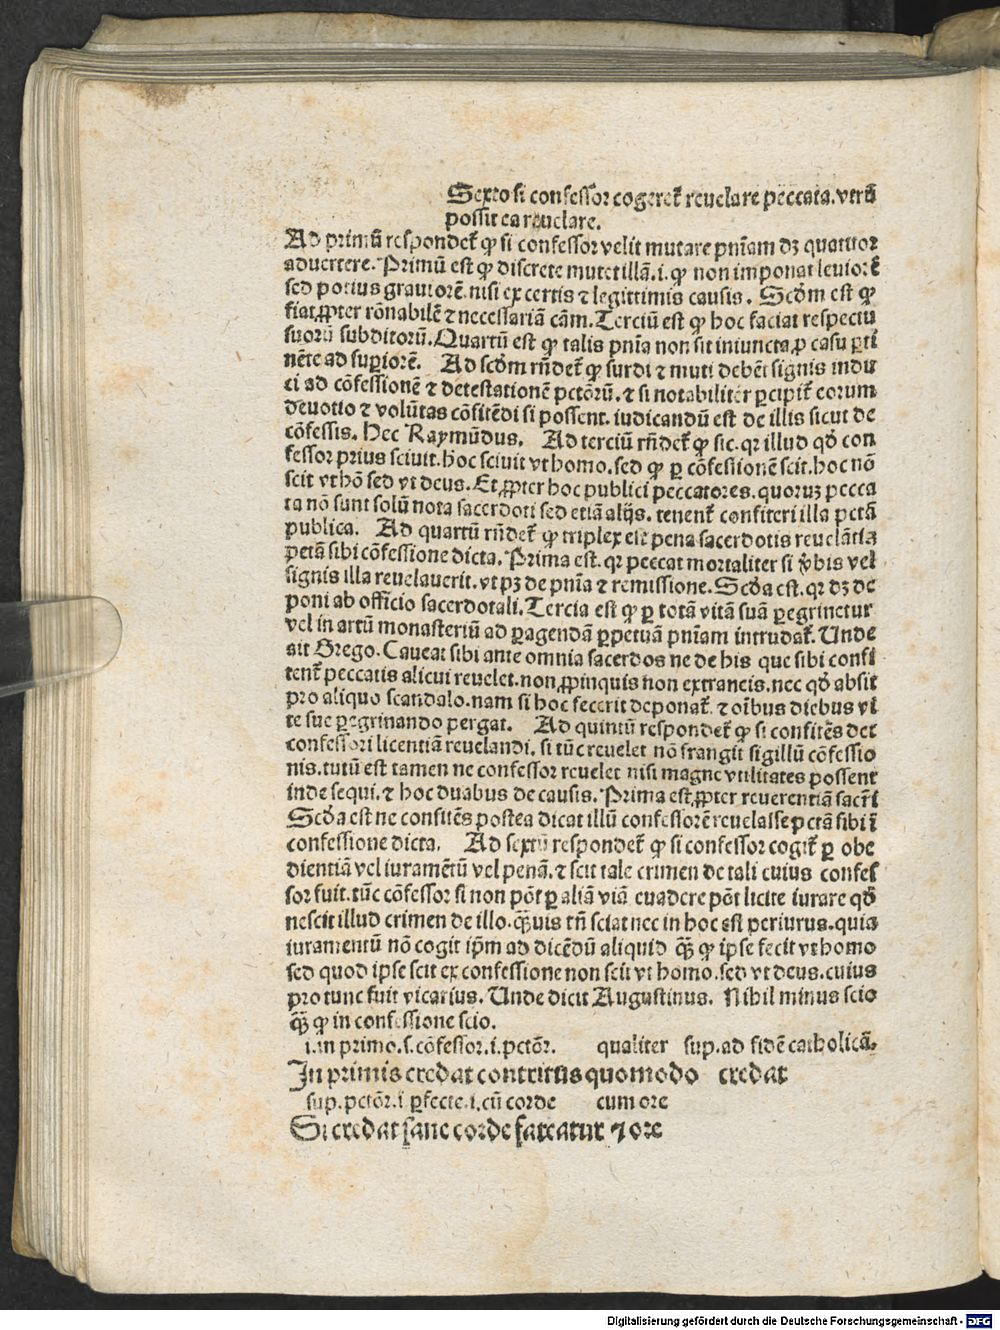 Sexto si confessor cogeret᷑ reuelare peccata. vtrū
possit ea reuelare.
Ad primū respondet᷑ ꝙ si confessor velit mutare pn̄iam dꝫ quattuor
aduertere. Primū est ꝙ discrete mutet illā. i. ꝙ non imponat leuiorē
sed potius grauiorē. nisi ex certis ⁊ legittimis causis. Scd̄m est ꝙ
fiat ꝓpter rōnabilē ⁊ necessariā cām. Terciū est ꝙ hoc faciat respectu
suorū subditorū. Quartū est ꝙ talis pn̄ia non sit iniuncta ꝓ casu ꝑti
nēte ad suꝑiorē. Ad scd̄m rn̄det᷑ ꝙ surdi ⁊ muti debēt signis indu
ci ad cōfessionē ⁊ detestationē pctōrū. ⁊ si notabiliter ꝑcipit᷑ eorum
deuotio ⁊ volūtas cōfitēdi si possent. iudicandū est de illis sicut de
cōfessis. Hec Raymūdus. Ad terciū rn̄det᷑ ꝙ sic. qr illud qd̄ con
fessor prius sciuit. hoc sciuit vt homo. sed ꝙ ꝑ cōfessionē scit. hoc nō
scit vt hō sed vt deus. Et ꝓpter hoc publici peccatores. quoruꝫ pecca
ta nō sunt solū nota sacerdoti sed etiā alijs. tenent᷑ confiteri illa pctā
publica. Ad quartū rn̄det᷑ ꝙ triplex est pena sacerdotis reuelātis
pctā sibi cōfessione dicta. Prima est. qr peccat mortaliter si v̄bis vel
signis illa reuelauerit. vt pꝫ de pn̄ia ⁊ remissione. Scd̄a est. qr dꝫ de
poni ab officio sacerdotali. Tercia est ꝙ ꝑ totā vitā suā ꝑegrinetur
vel in artū monasteriū ad ꝑagendā ꝑpetuā pn̄iam intrudat᷑. Unde
ait Grego. Caueat sibi ante omnia sacerdos ne de his que sibi confi
tent᷑ peccatis alicui reuelet. non ꝓpinquis non extraneis. nec qd̄ absit
pro aliquo scandalo. nam si hoc fecerit deponat᷑. ⁊ oībus diebus vi
te sue ꝑegrinando pergat. Ad quintū respondet᷑ ꝙ si confitēs det
confessori licentiā reuelandi. si tūc reuelet nō frangit sigillū cōfessio
nis. tutū est tamen ne confessor reuelet nisi magne vtilitates possent
inde sequi. ⁊ hoc duabus de causis. Prima est ꝓpter reuerentiā sacr̄i
Scd̄a est ne confitēs postea dicat illū confessorē reuelasse pctā sibi ī
confessione dicta. Ad sextū respondet᷑ ꝙ si confessor cogit᷑ ꝑ obe
dientiā vel iuramētū vel penā. ⁊ scit tale crimen de tali cuius confes
sor fuit. tūc cōfessor si non pōt ꝑ aliā viā euadere pōt licite iurare qd̄
nescit illud crimen de illo. quāuis tn̄ sciat nec in hoc est periurus. quia
iuramentū nō cogit ip̄m ad dicēdū aliquid quā ꝙ ipse fecit vt homo
sed quod ipse scit ex confessione non scit vt homo. sed vt deus. cuius
pro tunc fuit vicarius. Unde dicit Augustinus. Nihil minus scio
quā ꝙ in confessione scio.
i. in primo. s. cōfessor. i. pctōr. qualiter sup. ad fidē catholicā.
In primis credat contritus quomodo credat
sup. pctōr. i ꝑfecte. i. cū corde cum ore
Si credat sane corde fateatur ⁊ ore
Digitalisierung gefördert durch die Deutsche Forschungsgemeinschaft - DFG